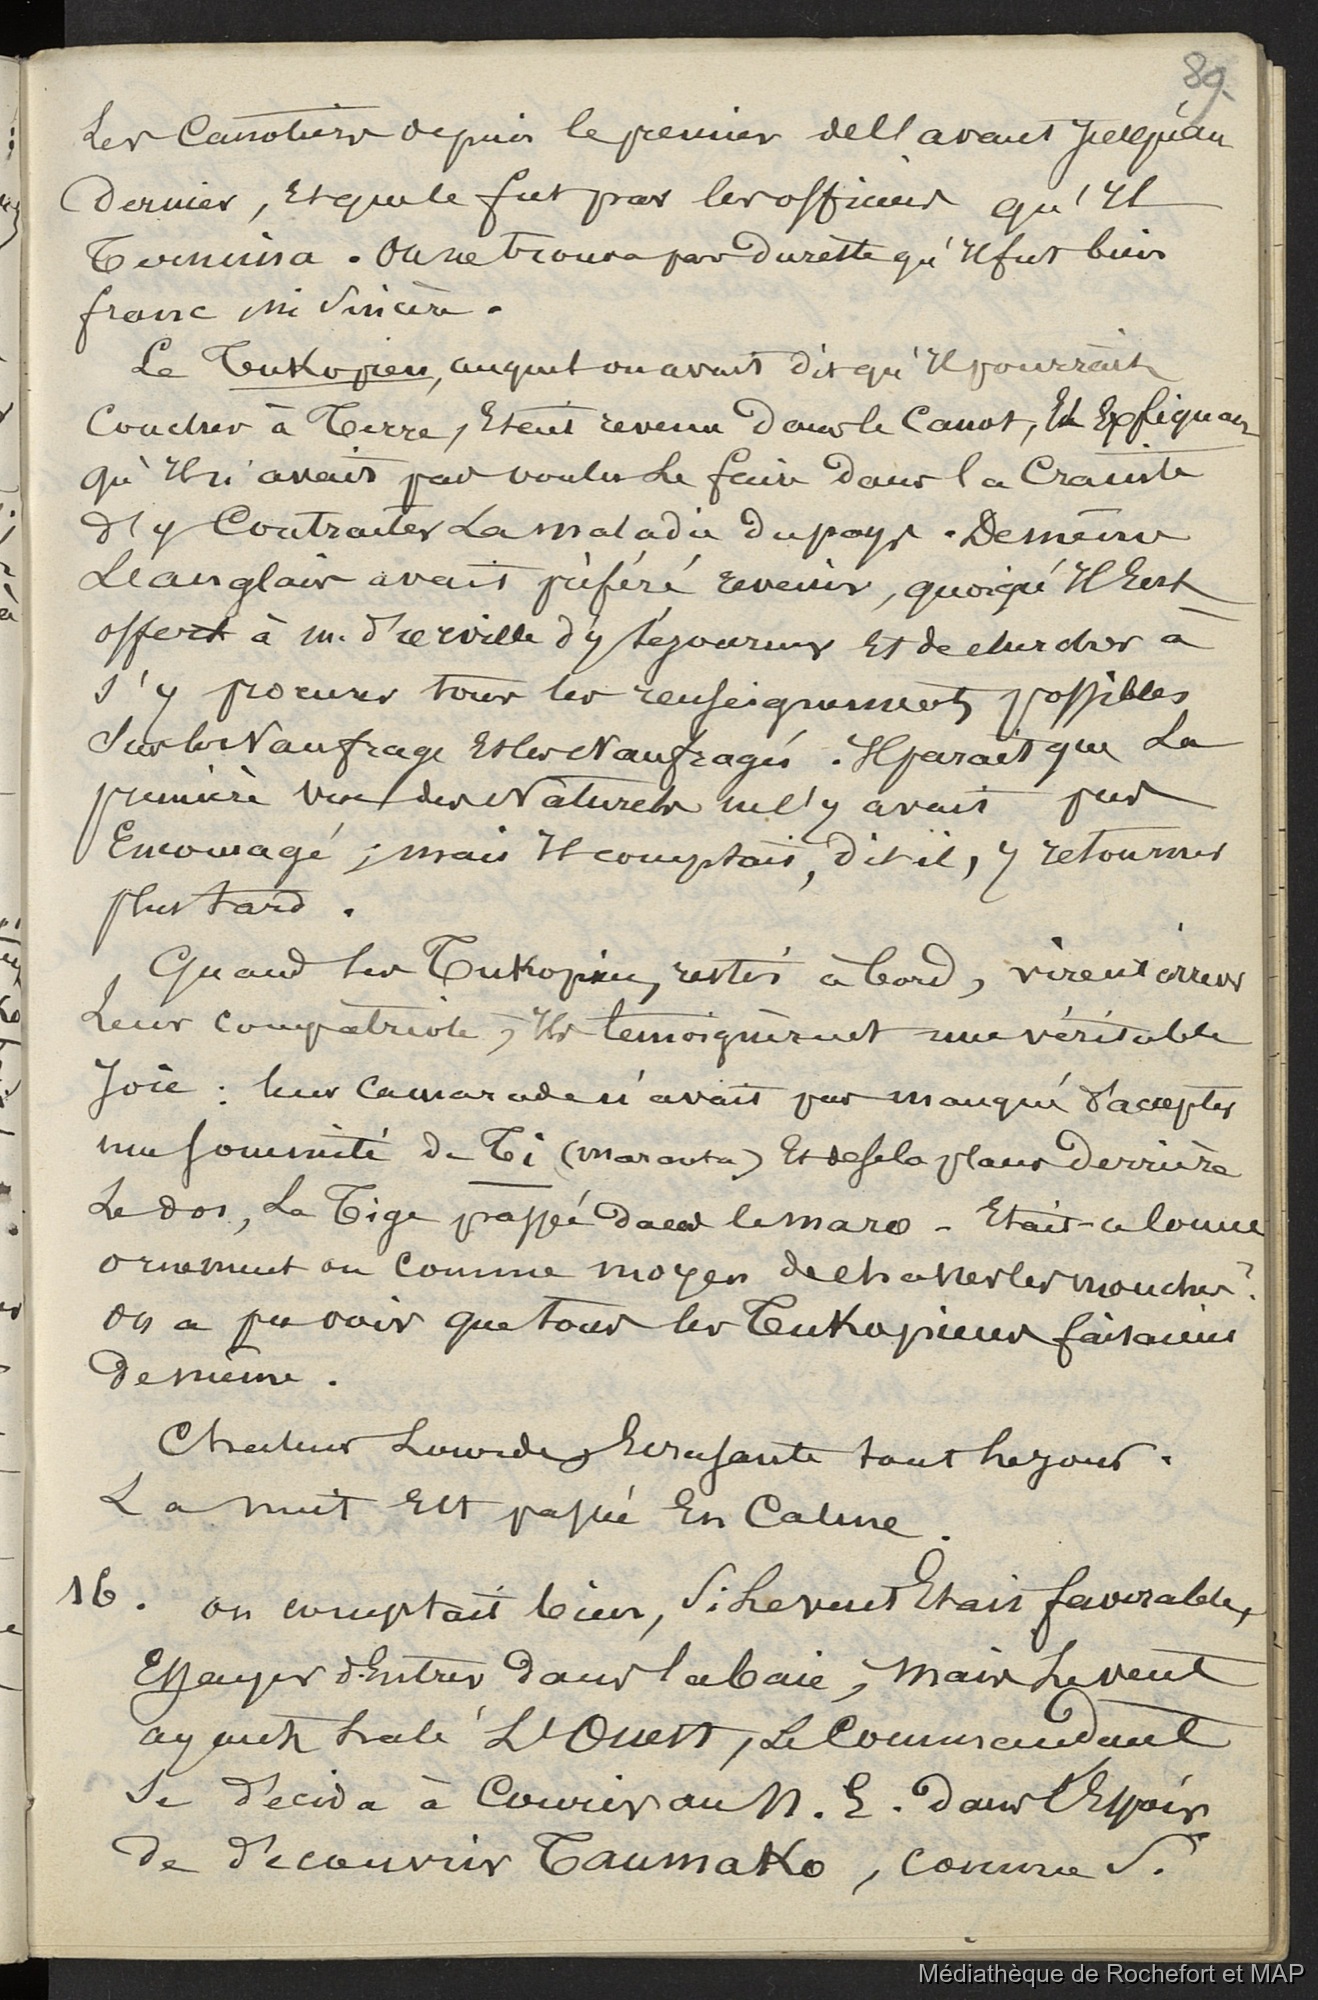 89.
Les Canotiers depuis le premier de l'avant Jusqu'au
Dernier, Et que le fut par les officiers qu'Il
Termina. On ne trouva pas Du reste qu'Il fut bien
franc ni Sincère.
Le Tukopien, auquel on avait dit qu'Il pourrait
Coucher à Terre, Etait revenu Dans le Canot, Et Expliquait
qu'Il n'avait pas voulu Le faire Dans la Crainte
d'y Contracter La maladie Du pays. De même
L'anglais avait préféré revenir, quoiqu'Il Eut
offert à m. d'urville d'y séjourner Et de chercher à
s'y procurer tous les renseignements possibles
Sur les Naufrage Et les Naufragés. Il parait que La
première vue des Naturels ne l'y avait pas
Encouragé ; mais Il comptait, dit-il, y retourner
plus tard.
Quand les Tukopiens, restés à bord, virent arriver
Leur compatriote, Ils temoignèrent une véritable
Joie : leur Camarade n'avait pas manqué d'accepter
une sommité de Ti (maranta) Et de se la placer Derrière
Le dos, La Tige passée dans le maro - Etait-ce comme
ornement ou comme moyen de chasser les mouches ?
On a pu voir que tous les Tukopiens faisaient
De même.
Chaleur Lourde, Ecrasante tout le jour.
La nuit Est passée En Calme.
16. on comptait bien, Si Le vent Etait favorable,
Essayer d'Entrer Dans la baie, Mais Le vent
ayant halé L'Ouest, Le Commandant
Se décida à Courir au N. E. Dans l'Espoir
De découvrir Taumako, comme S.
Médiathèque de Rochefort et MAP